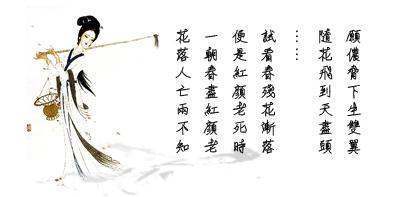 願儂脅下生雙翼
隨花飛到天盡頭
……
試看春殘花漸落
便是紅顏老死時
一朝春盡紅顏老
花落人亡兩不知